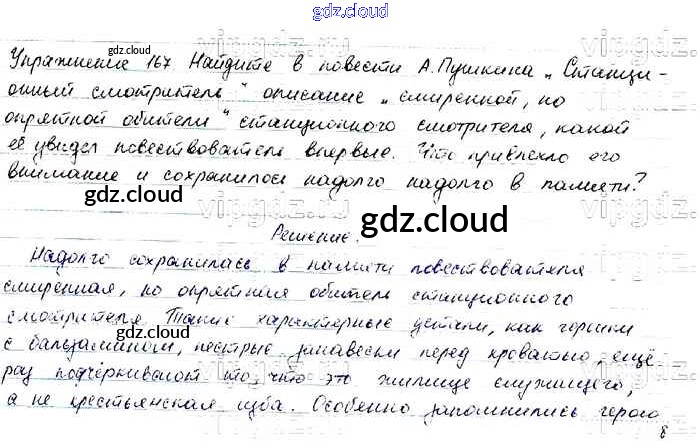 gdz.cloud
Упражнение 167 Найдите в повести А.Пушкина „Станци-
gdz.cloud
онный смотритель" описание „смиренной, но
опрятной обители" станционного смотрителя, какой
её увидел повествователь впервые. Что привлекло его
внимание и сохранилось надолго надолго в памяти?
gdz.cloud
gdz.cloud
Решение.
Надолго сохранилась в памяти повествователя
смиренная, но опрятная обитель станционного
смотрителя. Такие характерные детали, как горшки
gdz.cloud
gdz.cloud
с бальзамином, пестрые занавески перед кроватью, ещё
раз подчёркивают то, что это жилище служищего,
а не крестьянская изба. Особенно запомнились герою
8